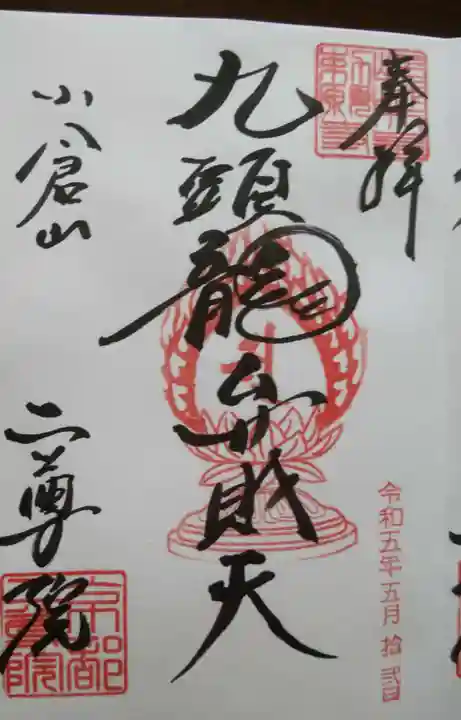 奉拝
九頭龍弁財天
令和五年五月拾弐日
小倉山
二尊院